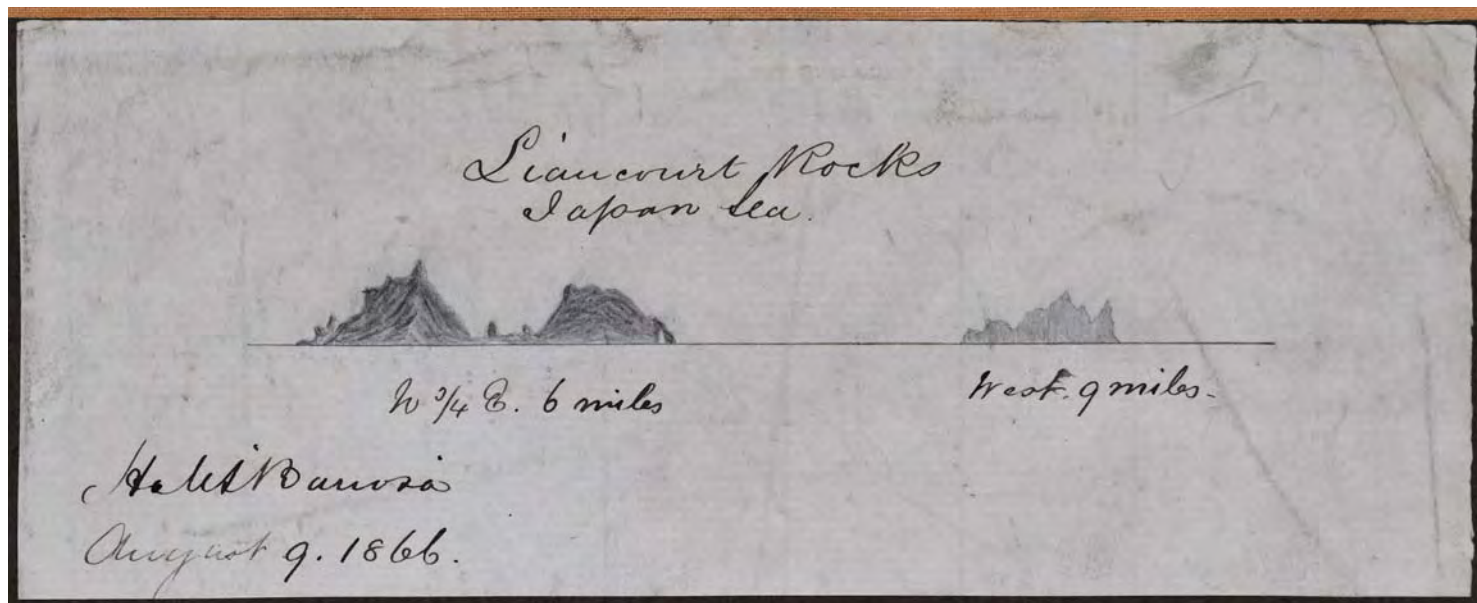 Liancourt Rocks
Japan Sea.
N 3/4 E. 6 miles
West. 9 miles-
HMS Barrosa
August 9. 1866.